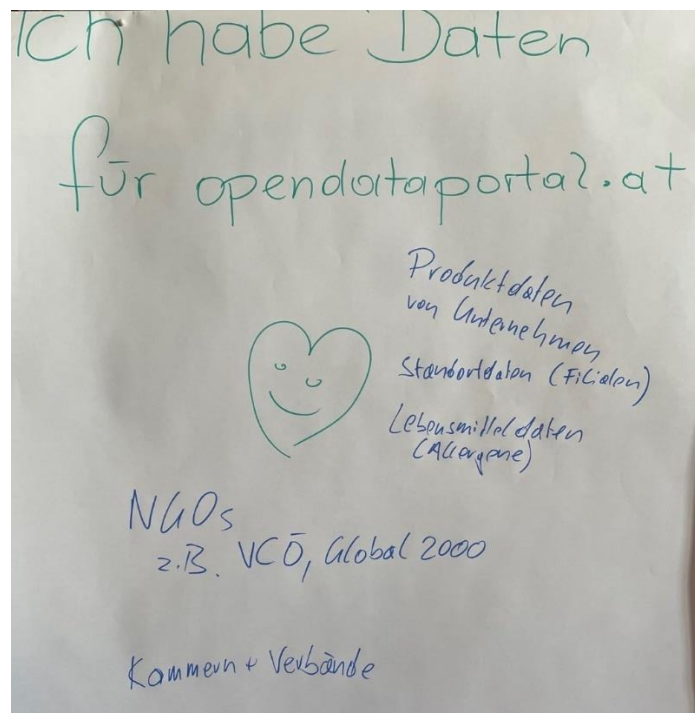 Ich habe Daten
für opendataportal.at
Produktdaten
von Unternehmen
Standortdaten (Filialen)
Lebensmitteldaten
(Allergene)
NGOs
z.B. VCÖ, Global 2000
Kammern + Verbände